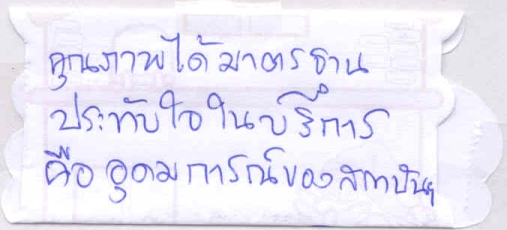 คุณภาพได้มาตรฐาน
ประทับใจในบริการ
คือ อุดมการณ์ของสถาบันฯ